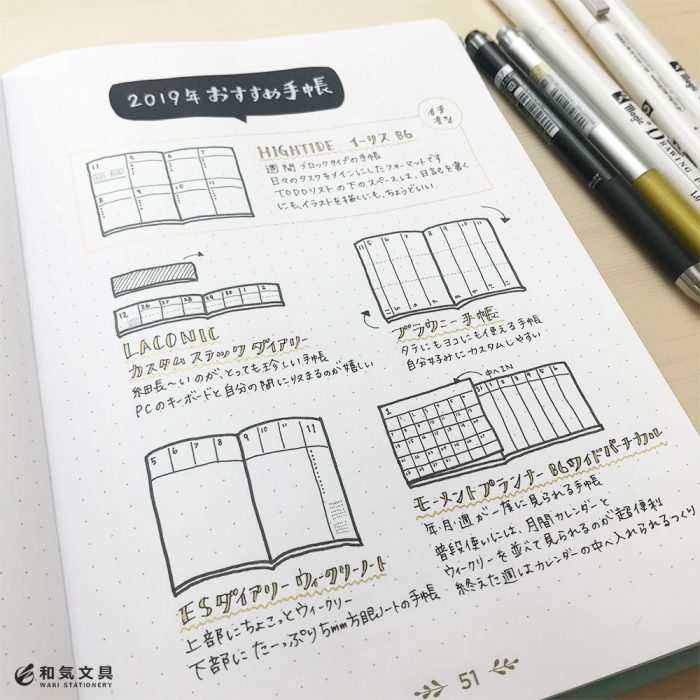 2019年 おすすめ手帳
イチ
オシ
HIGHTIDE イーリス B6
週間ブロックタイプの手帳
日々のタスクをメインにしたフォーマットです
TODOリストの下のスペースは、日記を書く
にも、イラストを描くにも、ちょうどいい
11 5 6 7
8 9 10 11
12 26 27 28 29 30 1 2
LACONIC
カスタム スティック ダイアリー
細長〜いのが、とっても珍しい手帳
PCのキーボードと自分の間に収まるのが嬉しい
11 5 6 7 8 9 10 11
ブラウニー手帳
タテにもヨコにも使える手帳
自分好みにカスタムしやすい
5 6 7 8 9 10 11
ESダイアリー ウィークリーノート
上部にちょこっとウィークリー
下部にたーっぷり5mm方眼ノートの手帳
中へIN
1
モーメントプランナー B6ワイドバーチカル
年・月・週が一度に見られる手帳
普段使いには、月間カレンダーと
ウィークリーを並べて見られるのが超便利
終えた週はカレンダーの中へ入れられるつくり
51
和気文具
WAKI STATIONERY
Magic
DRAWING
Magic